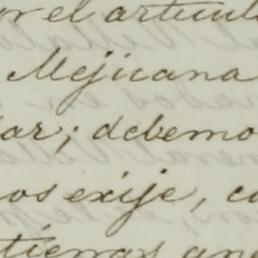 or el articul
Mejicana
dar; debemo
os exije, co
tierras an